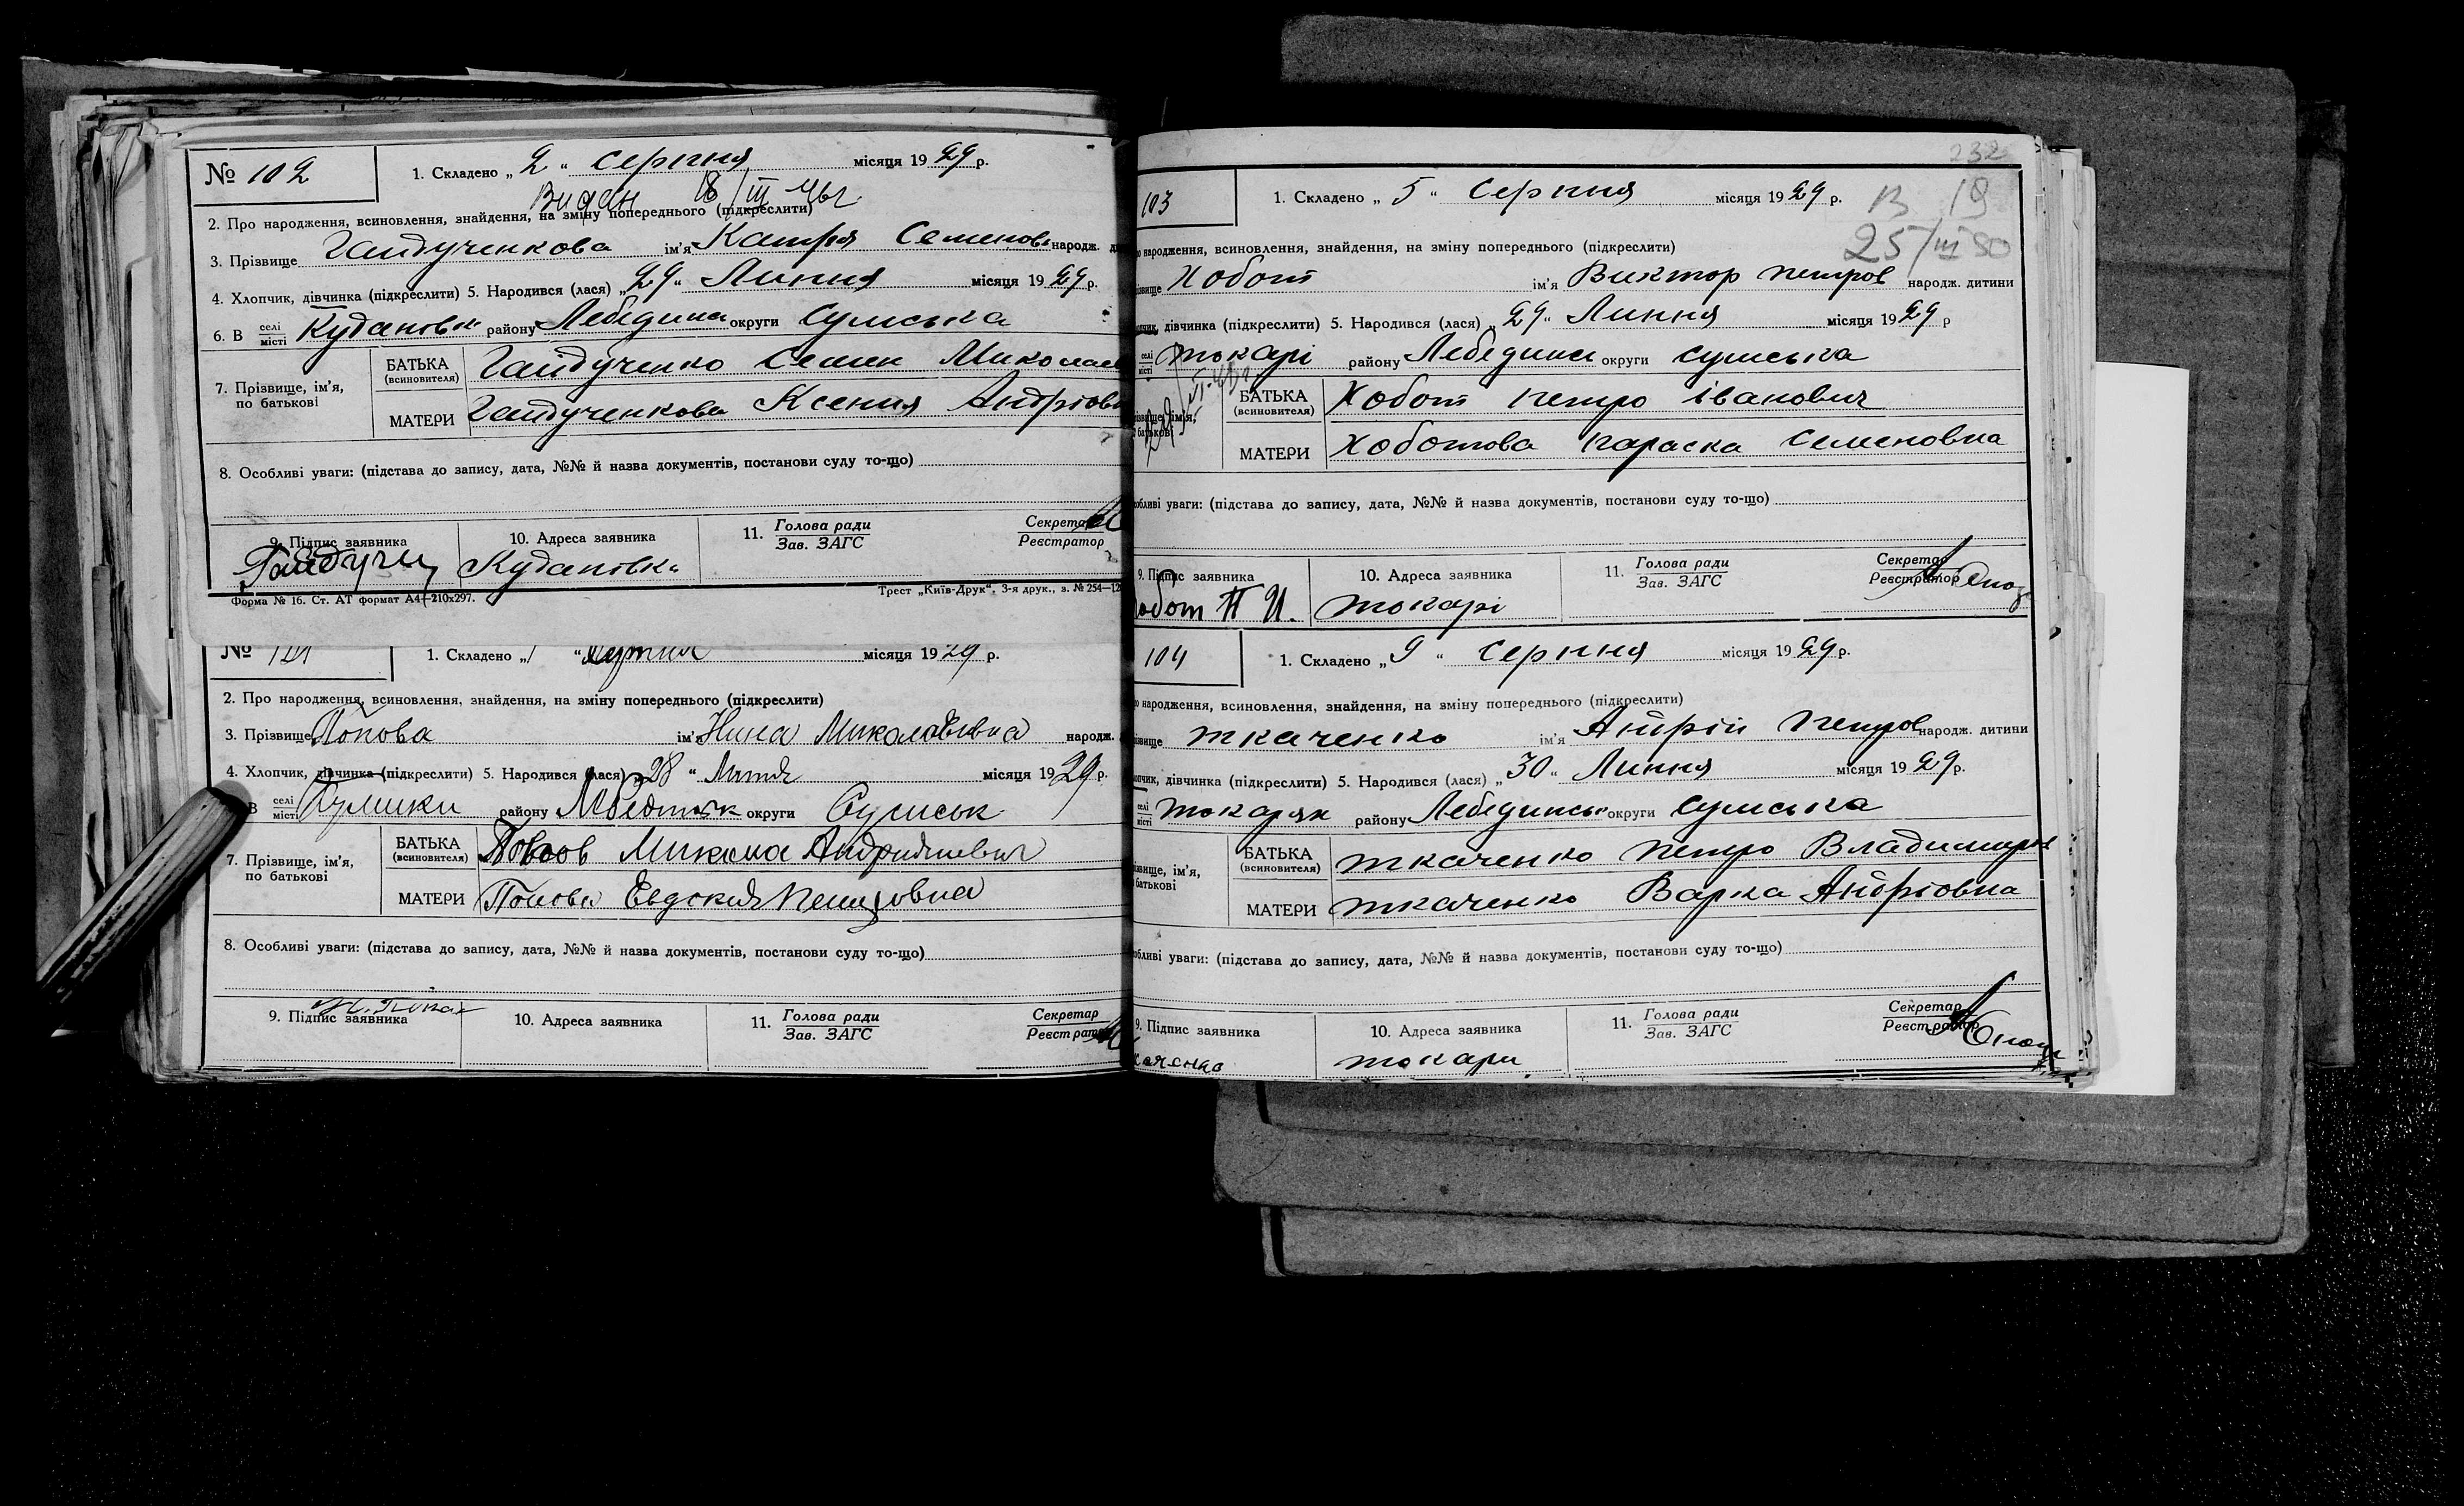 № 102
1. Складено „ 2 " серпня місяця 19 29 р.
Видан 18/III
2. Про народження, всиновлення, знайдення, на зміну попереднього (підкреслити)
3. Прізвище Гайдученкова ім'я Катря Семенов народж.
4. Хлопчик, дівчинка (підкреслити) 5. Народився (лася) „ 29 " Липня місяця 19 29 р.
6. В селі місті Кудановк району Лебедина округи Сумська
7. Прізвище, ім'я, по батькові
БАТЬКА (всиновителя) Гайдученко Семен Миколаев
МАТЕРИ Гайдученкова Ксения Андріовн
8. Особливі уваги: (підстава до запису, дата, №№ й назва документів, постанови суду то-що)
9. Підпис заявника Гайдучен
10. Адреса заявника Кудановка
11. Голова ради Зав. ЗАГС
Секретар Реєстратор
Форма № 16. Ст. АТ формат А4—210х297.
Трест „Київ-Друк". 3-я друк., з. № 254—12
№
1. Складено „ місяця 19 29 р.
2. Про народження, всиновлення, знайдення, на зміну попереднього (підкреслити)
3. Прізвище Попова ім'я Нина Миколаевна народж.
4. Хлопчик, дівчинка (підкреслити) 5. Народився (лася) „ 28 " Липня місяця 19 29 р.
В селі місті району округи Сумськ
7. Прізвище, ім'я, по батькові
БАТЬКА (всиновителя) Попов Микола
МАТЕРИ Попова Евдокия
8. Особливі уваги: (підстава до запису, дата, №№ й назва документів, постанови суду то-що)
9. Підпис заявника
10. Адреса заявника
11. Голова ради Зав. ЗАГС
Секретар Реєстратор
232
103
1. Складено „ 5 " серпня місяця 19 29 р.
В 19
25/III 50
о народження, всиновлення, знайдення, на зміну попереднього (підкреслити)
ізвище Хобот ім'я Виктор петров народж. дитини
опчик, дівчинка (підкреслити) 5. Народився (лася) „ 29 " Липня місяця 19 29 р
селі місті токарі району Лебединск округи сумська
ізвище, ім'я, батькові
БАТЬКА (всиновителя) Хобот петро іванович
МАТЕРИ Хоботова параска семеновна
обливі уваги: (підстава до запису, дата, №№ й назва документів, постанови суду то-що)
9. Підпис заявника Хобот П И.
10. Адреса заявника токарі
11. Голова ради Зав. ЗАГС
Секретар Реєстратор
104
1. Складено „ 9 " серпня місяця 19 29 р.
о народження, всиновлення, знайдення, на зміну попереднього (підкреслити)
ізвище ткаченко ім'я Андрій петров народж. дитини
опчик, дівчинка (підкреслити) 5. Народився (лася) „ 30 " Липня місяця 19 29 р.
селі місті токарях району Лебединськ округи сумська
ізвище, ім'я, батькові
БАТЬКА (всиновителя) ткаченко петро Владимиров
МАТЕРИ ткаченко Варка Андріовна
обливі уваги: (підстава до запису, дата, №№ й назва документів, постанови суду то-що)
9. Підпис заявника каченко
10. Адреса заявника токари
11. Голова ради Зав. ЗАГС
Секретар Реєстратор